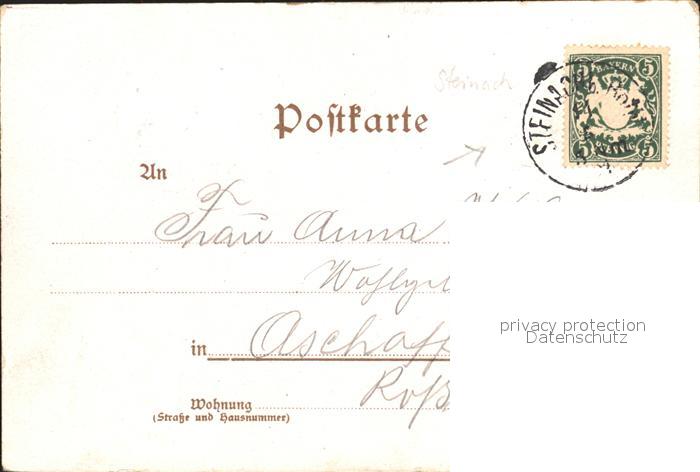 Steinach
5 BAYERN 5
STEINACH
5 PFENNIG 5
Postkarte
An
Frau Anna
Wohlge
in Aschaff
Roß
Wohnung
(Straße und Hausnummer)
privacy protection
Datenschutz